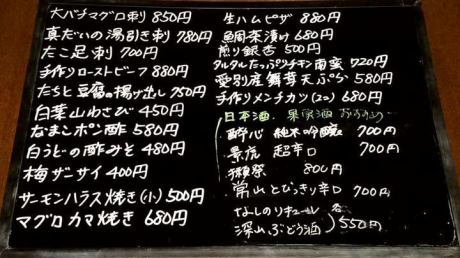 大バチマグロ刺 850円
真だいの湯引き刺 780円
たこ足刺 700円
手作りローストビーフ 880円
たちと豆腐の揚げ出し 750円
白葉山わさび 450円
なまこポン酢 580円
白うどの酢みそ 480円
梅ザーサイ 400円
サーモンハラス焼き(小) 500円
マグロカマ焼き 680円
生ハムピザ 880円
鯛茶漬け 680円
煎り銀杏 500円
タルタルたっぷりチキン南蛮 720円
愛別産舞茸天ぷら 580円
手作りメンチカツ(2コ) 680円
日本酒・果実酒 おすすめ
酔心 純米吟醸 700円
景虎 超辛口 700円
獺祭 800円
常山 とびっきり辛口 700円
なしのリキュール 各
深山ぶどう酒 550円